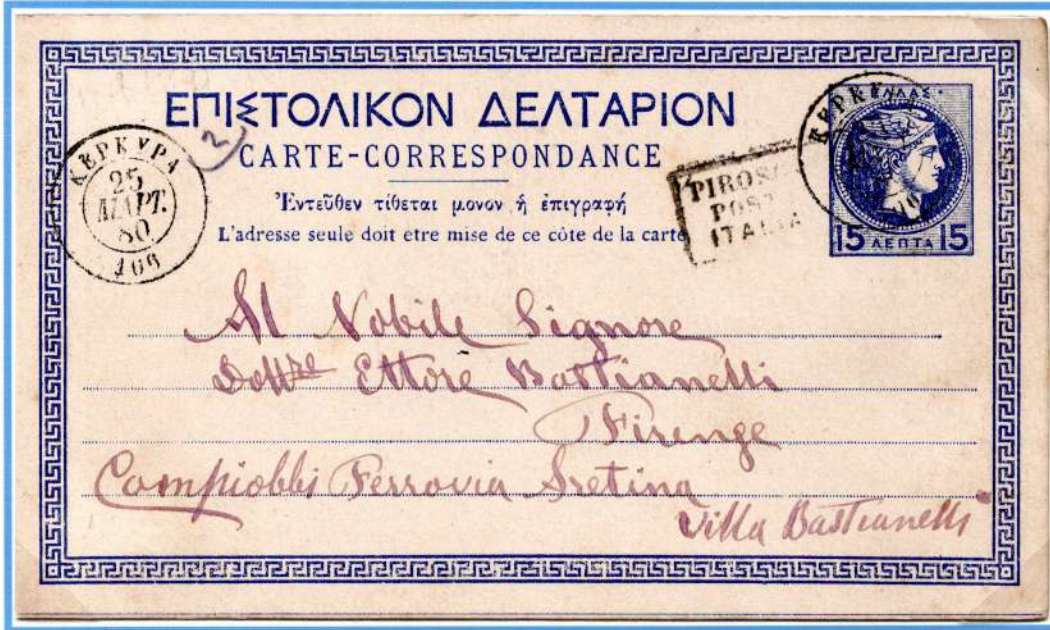 ΕΠΙΣΤΟΛΙΚΟΝ ΔΕΛΤΑΡΙΟΝ
CARTE-CORRESPONDANCE
Ἐντεῦθεν τίθεται μονον ἡ ἐπιγραφή
L'adresse seule doit etre mise de ce côte de la carte
ΚΕΡΚΥΡΑ
25
ΜΑΡΤ.
80
106
2
PIROS
POST
ITALIA
ΚΕΡΚ
ΕΛΛΑΣ
15 ΛΕΠΤΑ 15
Al Nobile Signore
Dottre Ettore Bastianelli
Firenze
Compiobbi Ferrovia Aretina
Villa Bastianelli